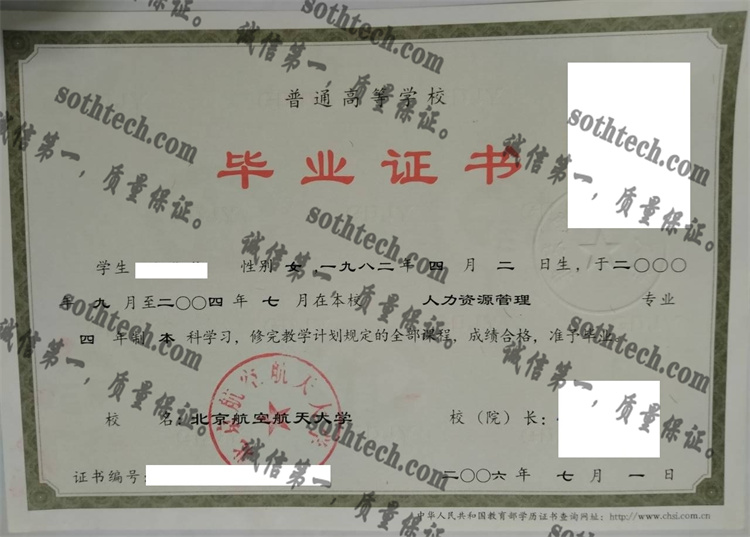 普通高等学校
毕业证书
学生 性别 女 ,一九八二年 四 月 二 日生,于二〇〇〇
年 九 月至二〇〇四年 七 月在本校 人力资源管理 专业
四 年制 本 科学习,修完教学计划规定的全部课程,成绩合格,准予毕业
校 名:北京航空航天大学 校(院)长:
证书编号: 二〇〇六年 七 月 一 日
中华人民共和国教育部学历证书查询网址:http://www.chsi.com.cn
北京航空航天大学
sothtech.com
诚信第一,质量保证。
sothtech.com
诚信第一,质量保证。
sothtech.com
诚信第一,质量保证。
sothtech.com
诚信第一,质量保证。
sothtech.com
诚信第一,质量保证。
sothtech.com
诚信第一,质量保证。
sothtech.com
诚信第一,质量保证。